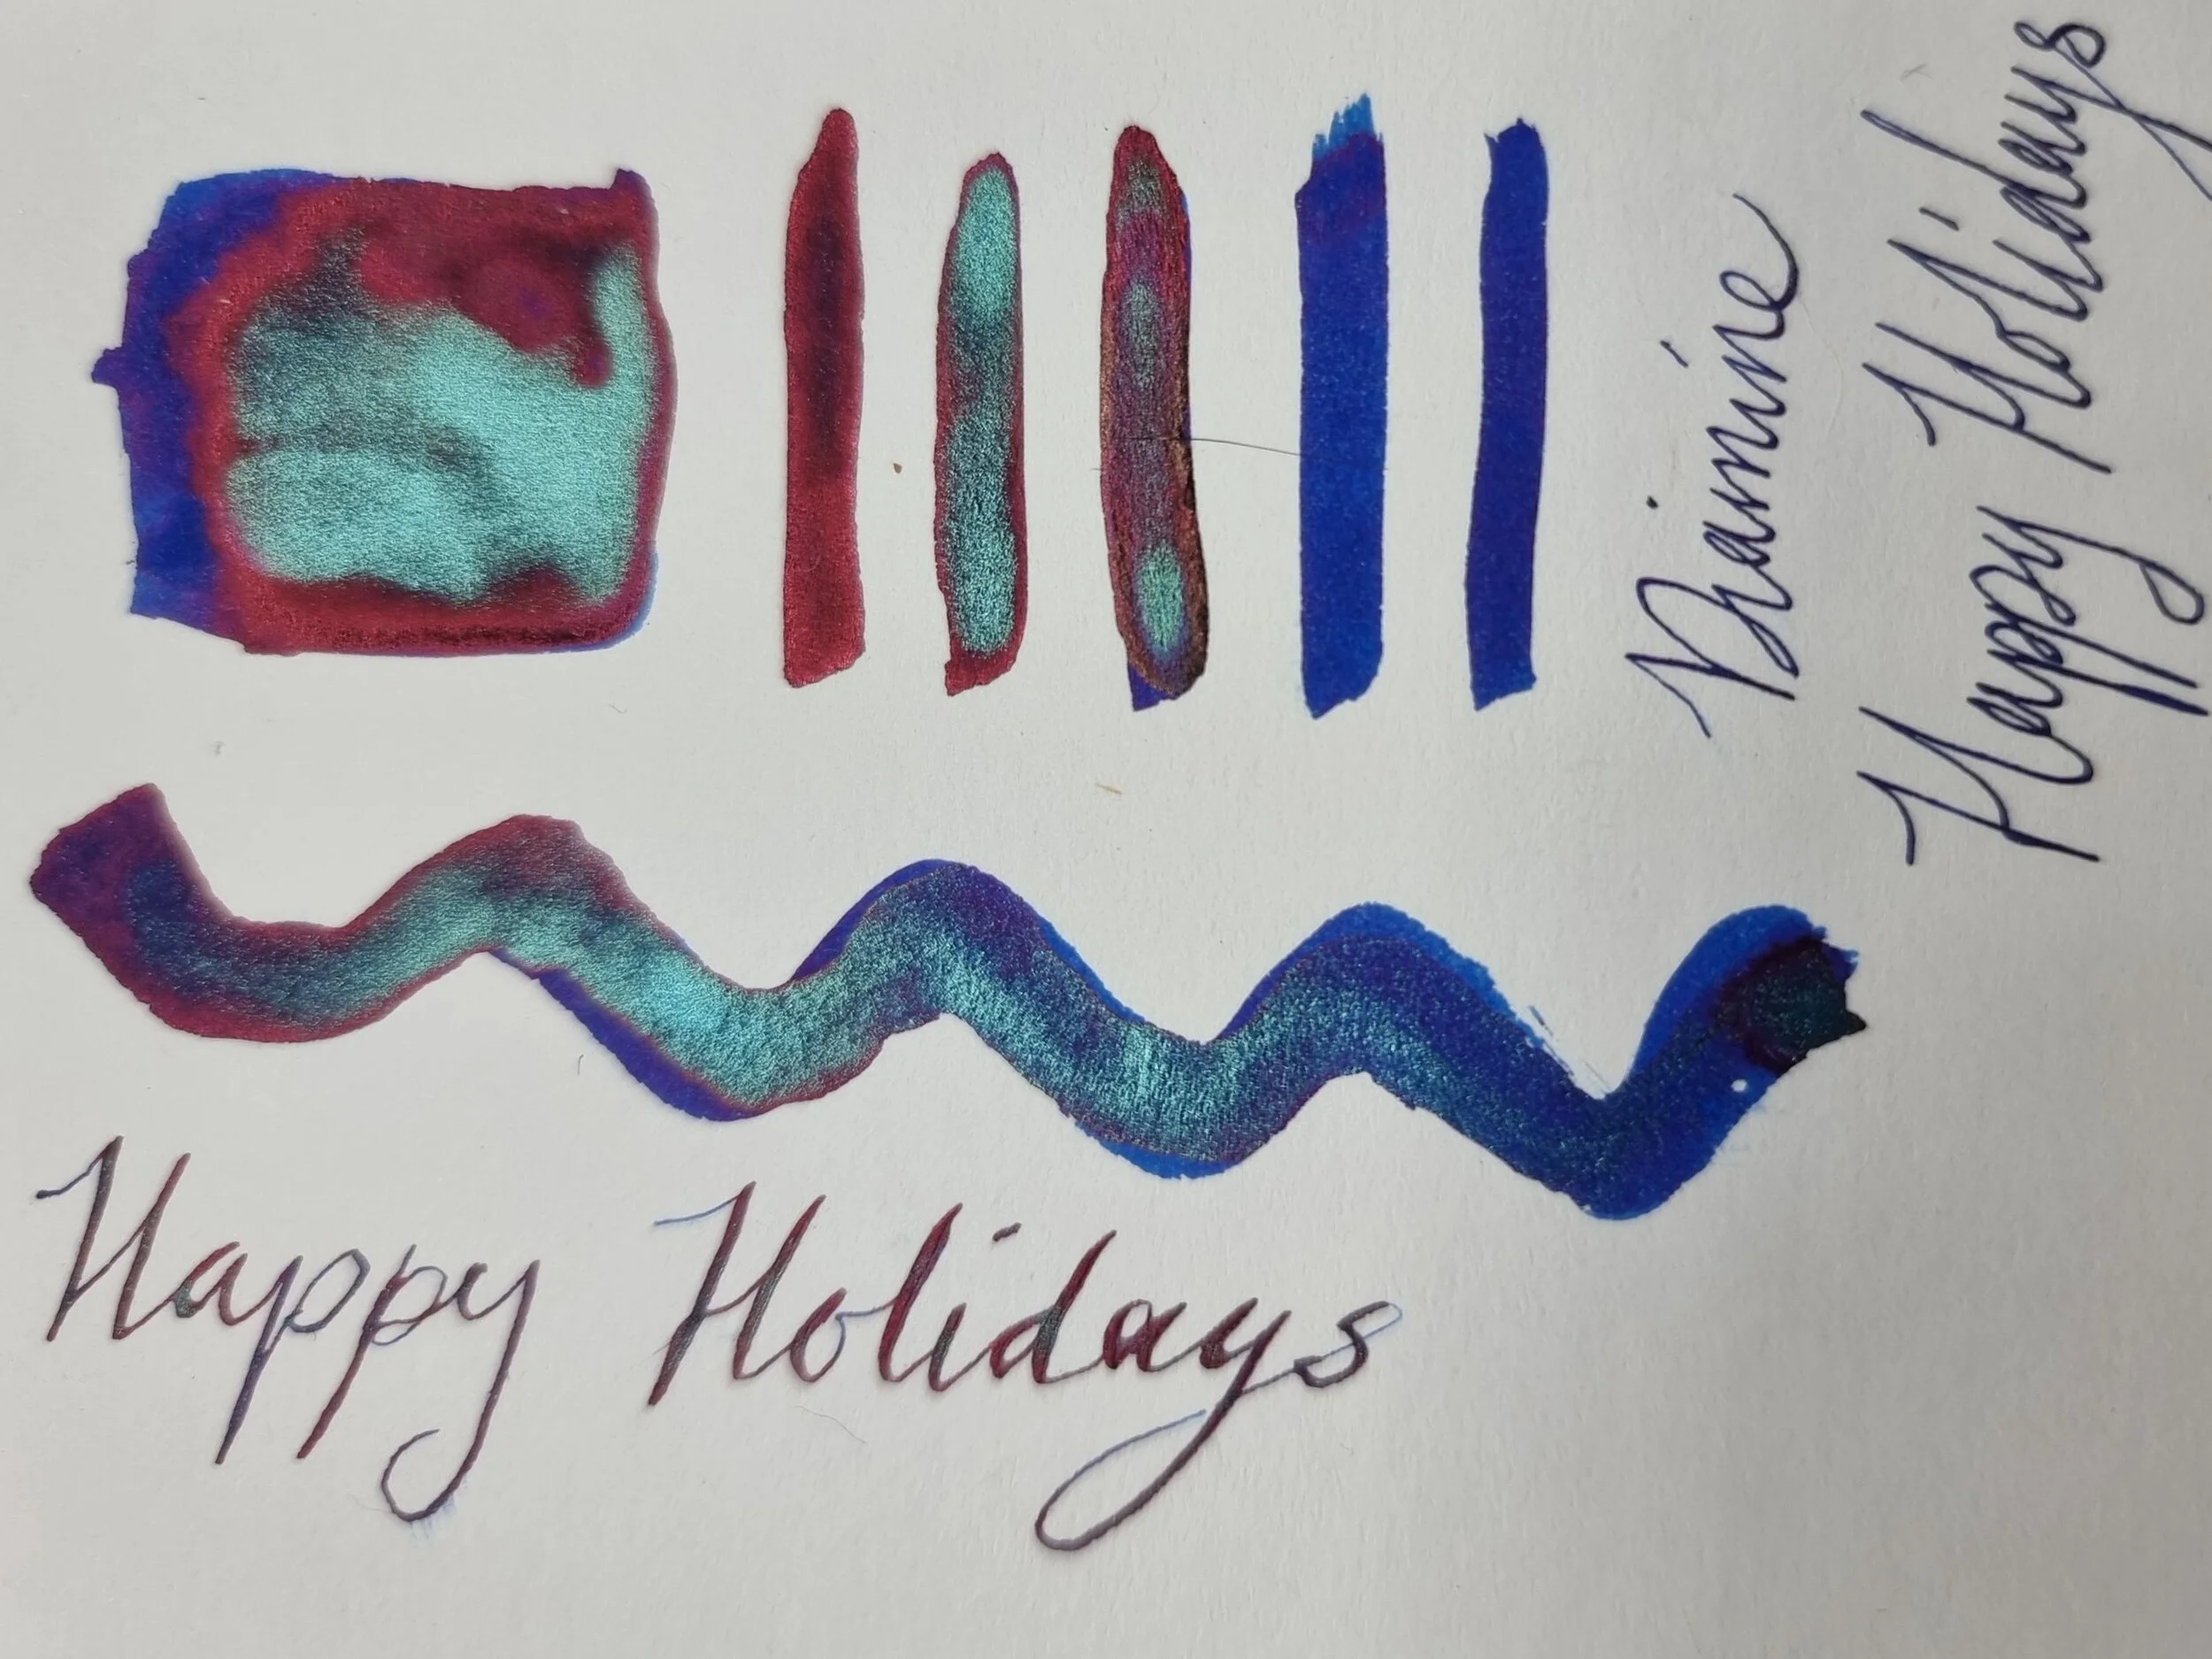 Diamine
Happy Holidays
Happy Holidays